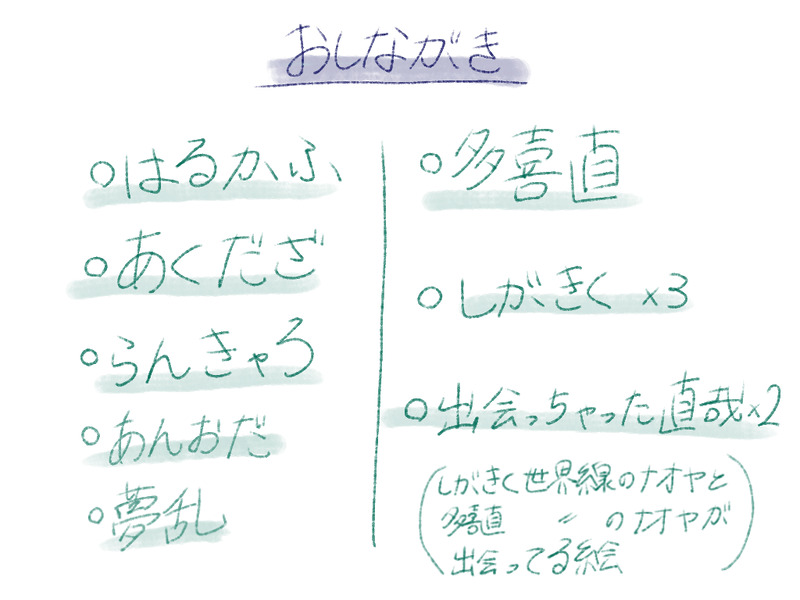 おしながき
○はるかふ
○あくだざ
○らんきゃろ
○あんおだ
○夢乱
○多喜直
○しがきく ×3
○出会っちゃった直哉×2
(しがきく世界線のナオヤと
多喜直 〃 のナオヤが
出会ってる絵)